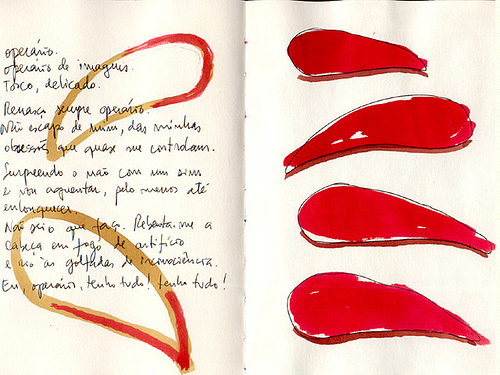 operário.
operário de imagens.
Tosco, delicado.
Renasço sempre operário.
Não escapo de mim, das minhas
obsessões que quase me controlam.
Surpreendo o não com um sim
e vou aguentar, pelo menos até
enlouquecer.
Não sei o que faço. Rebenta-me a
cabeça em fogo de artifício
e rio às golfadas de inconsciência.
Eu, operário, tenho tudo! tenho tudo!